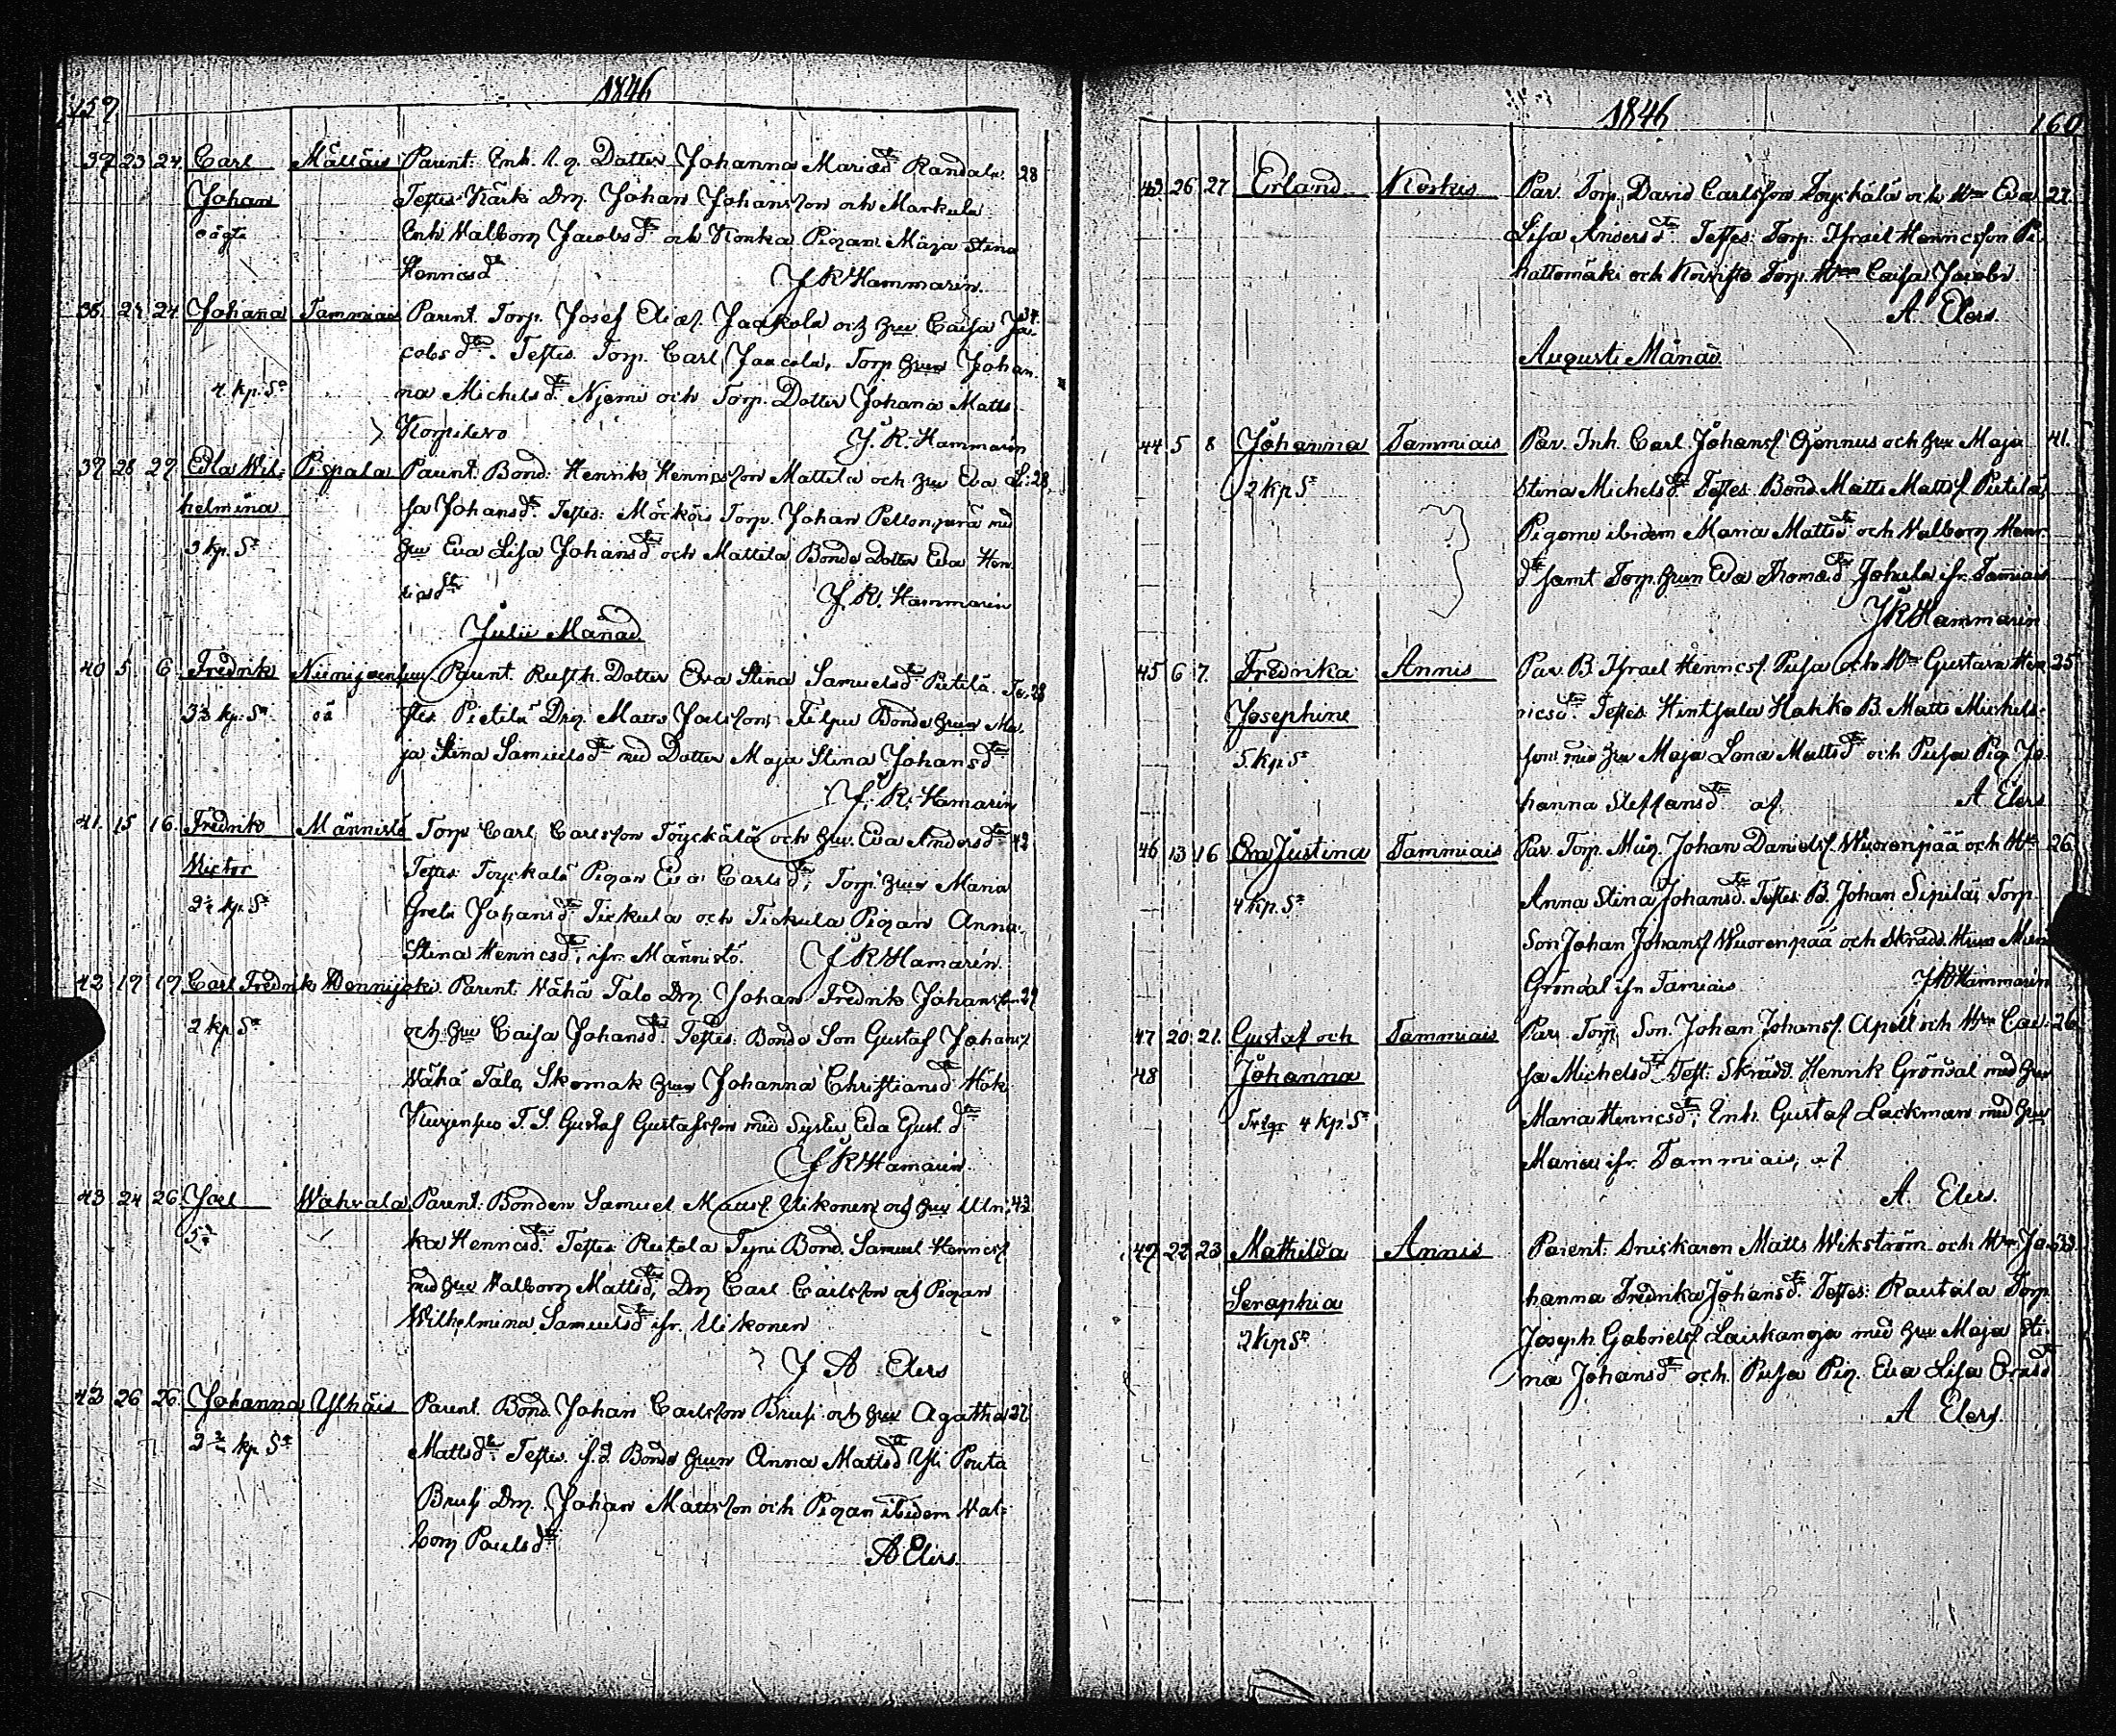 159
1846
37 23 24 Carl Mälläis Parent: Enh. Dotter Johanna Mariædtr Randala 28
Johan Testes Kärki Drg. Johan Johansson och Markula
oägte Enh. Walborg Jacobsdtr och Konka Pigan Maja Stina
Henricsdtr J K Hammarén.
38. 24 24 Johana Tammiais Parent. Torp. Josef Eliæs. Jaakola och hru Caisa Ja- 34.
cobsdtr. Testes Torp. Carl Jaacola, Torp hrun Johan-
4 kp. Sd na Michelsdtr Njemi och Torp. Dotter Johana Matts
J. K. Hammarén
39 28 29 Eva Wil- Pispala Parent. Bond. Henrik Henricsson Mattila och hru Eva Li- 28
helmina sa Johansdtr. Testes: Torp. Johan med
3 kp. Sd hru Eva Lisa Johansdtr och Mattila Bonde Dotter Eva Hen-
ricsdtr J. K. Hammarén
Julii Månad
40 5 6 Fredrik Niemijoensuu Parent. Rusth. Dotter Eva Stina Samuelsdtr Pietilä. Te- 28
3½ kp. Sd oä stes Pietilä Drg. Matts Joelsson, Filpu Bonde hrun Ma-
ja Stina Samuelsdtr med Dotter Maja Stina Johansdtr
J. K. Hamarén
41. 15 16. Fredrik Männistö Torp Carl Carlsson Töyckälä och hru. Eva Andersdtr 42
Victor Testes Töyckälä Pigan Eva Carlsdtr, Torp hrun Maria
2½ kp. Sd Greta Johansdtr Tickula och Tickula Pigan Anna
Stina Henricsdtr, ifr. Männistö. J K Hamarén.
42 17 19 Carl Fredrik Hennijoki Parent Vähä Talo Drg. Johan Fredrik Johansson 29
2 kp Sd och hru Caisa Johansdtr. Testes: Bonde Son Gustaf Johans.
Vähä Talo, Skomak hrun Johanna Christiansdtr
T. S. Gustaf Gustafsson med Syster Eva Gust. dtr
J K Hamarén.
43 24 26 Joel Wahvala Parent: Bonden Samuel Matts. Uikonen och hru Ulri- 43
ka Henricsdtr. Testes Bond. Samuel Henrics.
med hru Walborg Mattsdtr, Drg Carl Carlsson och Pigan
Wilhelmina Samuelsdtr ifr. Uikonen
J A Elers
43 26 26 Johanna Ylhäis Parent. Bond Johan Carlsson Brusi och hru Agatha 27
2¾ kp Sd Mattsdtr Testes f. d. Bonde hrun Anna Mattsdtr Yli Pouta
Brusi Drg. Johan Mattsson och Pigan ibidem Wal-
borg Paulsdtr
A Elers.
1846
160
43. 26 27 Erland Koskis Par. Torp. David Carlsson Töyckälä och Hru Eva 27.
Lisa Andersdtr. Testes: Torp. Israel Henricsson Pi-
hattomäki och Koivisto Torp. Hru Caisa Jacobs
A Elers
Augusti Månad.
44 5 8 Johanna Tammiais Par. Inh. Carl Johans. Gönnus och hru Maja 41.
2 kp Sd Stina Michelsdtr Testes. Bond Matts Matts. Pietilä,
Pigorne ibidem Maria Mattsdtr och Walborg Henr.
dtr samt Torp. hrun Eva Thomædtr Johula ifr. Tamiais
J K Hammarén
45 6 7 Fredrika Annis Par. B. Israel Henrics. Pusa och Hru Gustava Hen- 25
Josephine ricsdtr. Testes Hintsala Hahko B. Matts Michels-
5 kp Sd son med hru Maja Lena Mattsdtr och Pusa Pig. Jo-
hanna Steffansdtr af A Elers
46 13 16 Eva Justina Tammiais Par. Torp. Måg. Johan Daniels. Wuorenpää och Hru 26
4 kp. Sd Anna Stina Johansdtr. Testes B. Johan Sipilä, Torp.
Son Johan Johans. Wuorenpää och Skrädd. Hrun Maria
Gröndal ifr Tamiais J K Hammarén
47 20 21. Gustaf och Tammiais Par. Torp. Son. Johan Johans. Apell och Hru Cai- 26
48 Johanna sa Michelsdtr Test: Skrädd. Henrik Gröndal med hru
4 kp. Sd Maria Henricsdtr, Enh. Gustaf Lackman med hru
Maria ifr. Tammiais, af
A. Elers.
49 22 23 Mathilda Annis Parent: Snickaren Matts Wikström och Hru Jo- 33
Seraphia hanna Fredrika Johansdtr. Testes: Rautala Torp.
2 kp Sd Joseph Gabriels. Laiskanoja med hru Maja Sti-
na Johansdtr och Pusa Pig. Eva Lisa
A Elers.